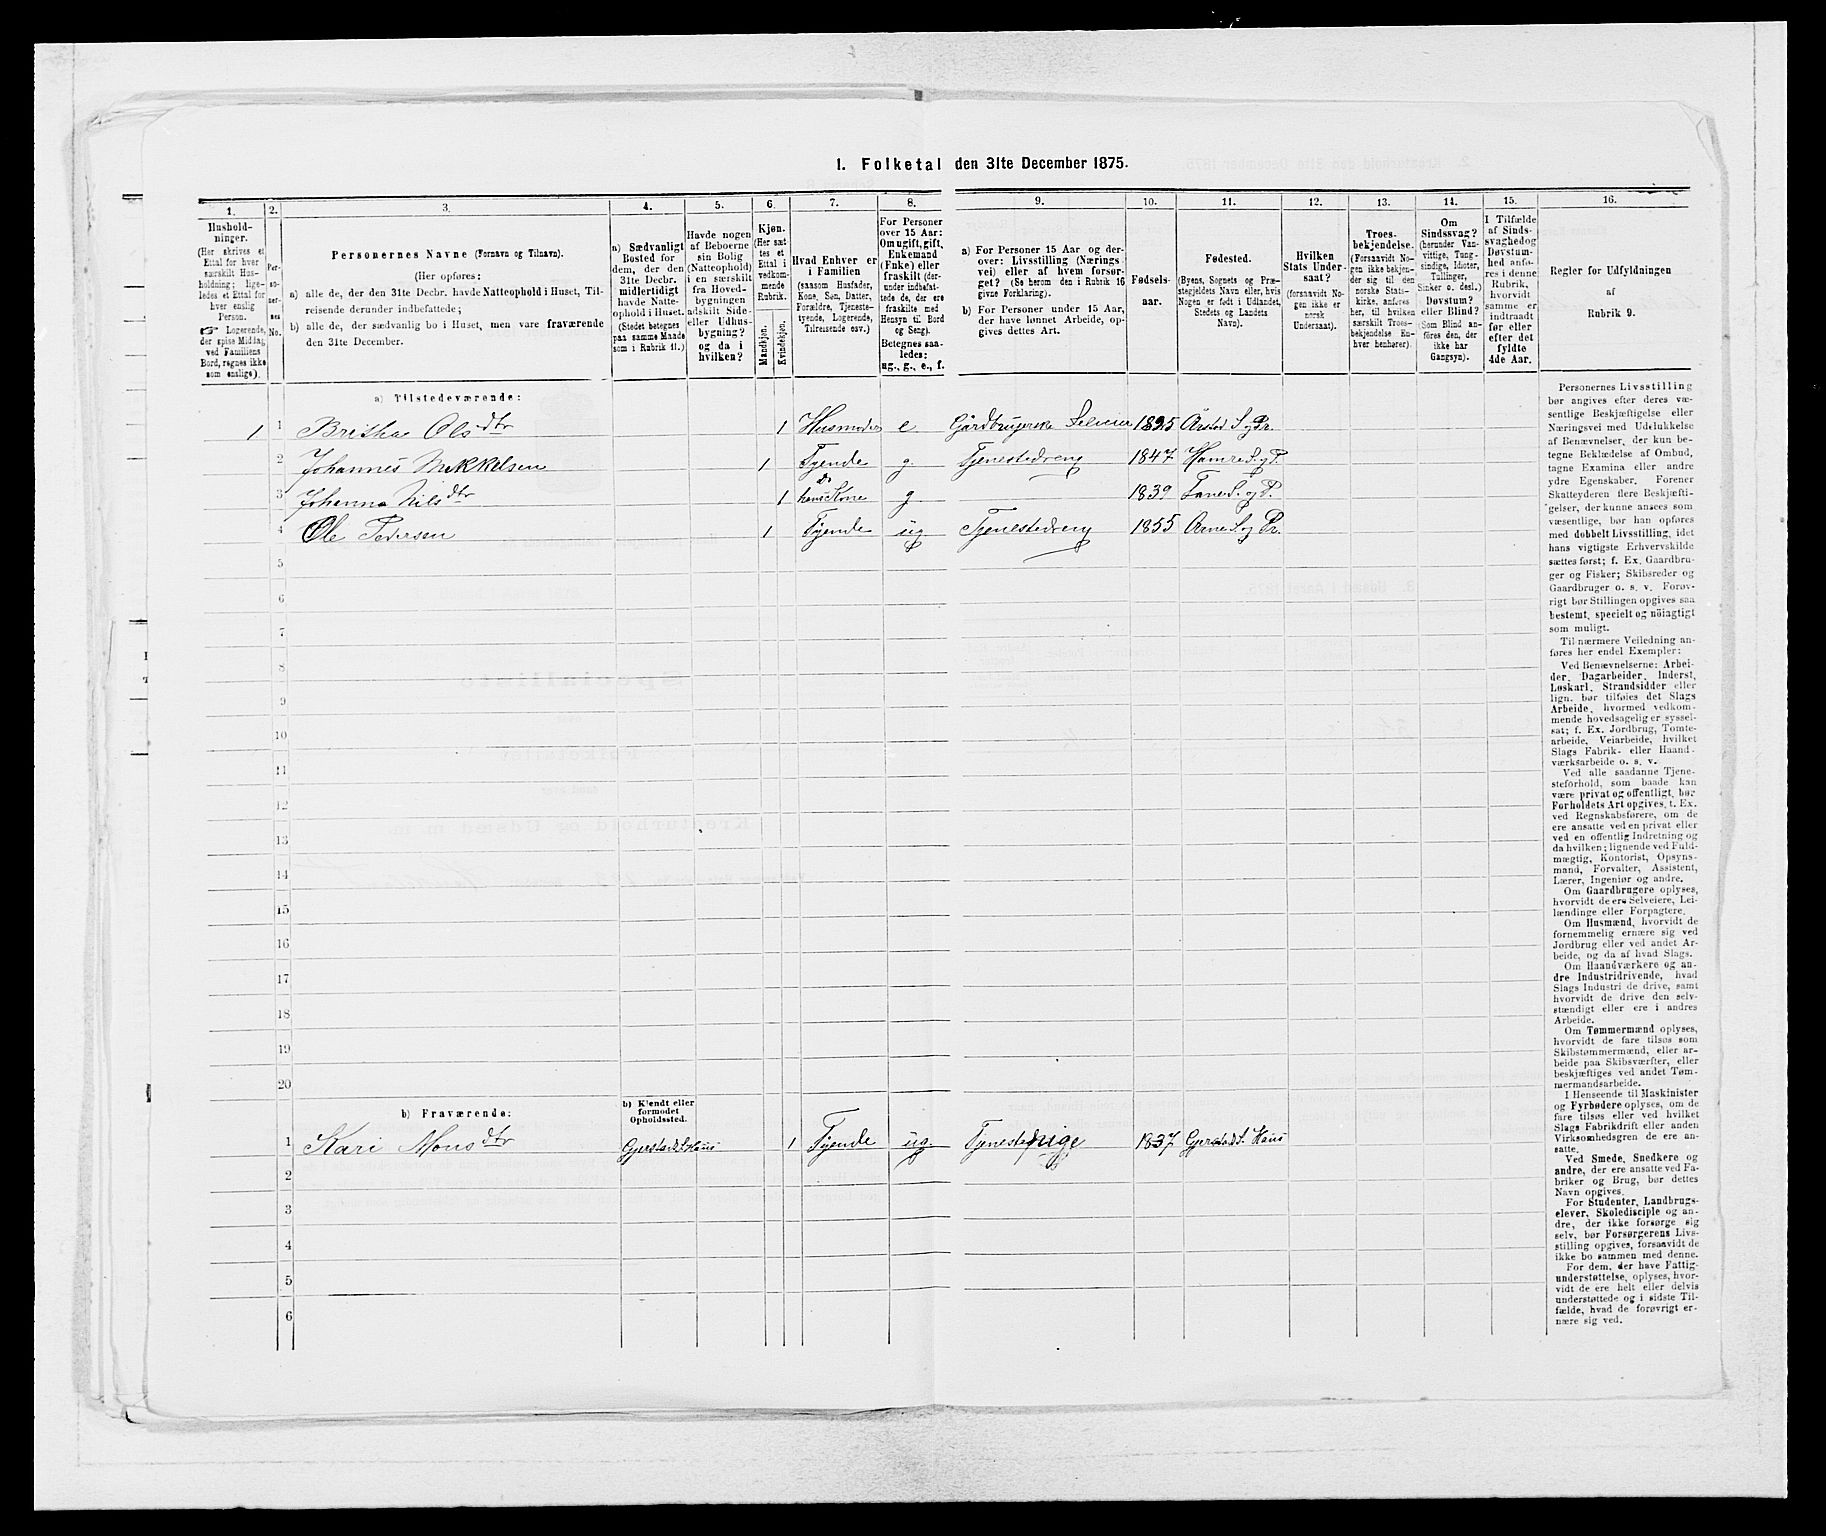 1. Folketal den 31te December 1875.
1. 2. 3. 4. 5. 6. 7. 8. 9. 10. 11. 12. 13. 14. 15. 16.
Hushold-
ninger.
(Her skrives et
Ettal for hver
særskilt Hus-
holdning; lige-
ledes et Ettal for
hver enslig
Person.
☞ Logerende,
der spise Middag
ved Familiens
Bord, regnes ikke
som enslige).
Per-
so-
ner-
nes
No.
Personernes Navne (Fornavn og Tilnavn).
(Her opføres:
a) alle de, der den 31te Decbr. havde Natteophold i Huset, Til-
reisende derunder indbefattede;
b) alle de, der sædvanlig bo i Huset, men vare fraværende
den 31te December.
a) Sædvanligt
Bosted for
dem, der den
31te Decbr.
midlertidigt
havde Natte-
ophold i Huset.
(Stedet betegnes
paa samme Maade
som i Rubrik 11.)
Havde nogen
af Beboerne
sin Bolig
(Natteophold)
i en særskilt
fra Hoved-
bygningen
adskilt Side-
eller Udhus-
bygning?
og da i
hvilken?
Kjøn.
(Her sæt-
tes et
Ettal i
vedkom-
mende
Rubrik.
Mandkjøn.
Kvindekjøn.
Hvad Enhver er
i Familien
(saasom Husfader,
Kone, Søn, Datter,
Forældre, Tjeneste-
tyende, Logerende,
Tilreisende osv.)
For Personer
over 15 Aar:
Om ugift, gift,
Enkemand
(Enke) eller
fraskilt (der-
under indbefat-
tede de, der ere
fraskilte med
Hensyn til Bord
og Seng).
Betegnes saa-
ledes:
ug., g., e., f.
a) For Personer 15 Aar og der-
over: Livsstilling (Nærings-
vei) eller af hvem forsør-
get? (Se herom den i Rubrik 16
givne Forklaring).
b) For Personer under 15 Aar,
der have lønnet Arbeide, op-
gives dettes Art.
Fødsels-
aar.
Fødested.
(Byens, Sognets og Præ-
stegjeldets Navn eller, hvis
Nogen er født i Udlandet,
Stedets og Landets
Navn).
Hvilken
Stats Under-
saat?
(forsaavidt No-
gen ikke er
norsk
Undersaat).
Troes-
bekjendelse.
(Forsaavidt No-
gen ikke bekjen-
der sig til den
norske Stats-
kirke, anføres
her, til hvilken
særskilt Troes-
bekjendelse En-
hver henhører).
Om
Sindssvag?
(herunder Van-
vittige, Tung-
sindige, Idioter,
Tullinger,
Sinker o. desl.)
Døvstum?
eller Blind?
(Som Blind an-
føres den, der
ikke har
Gangsyn).
I Tilfælde
af Sinds-
svaghed og
Døvstum-
hed anfø-
res i denne
Rubrik,
hvorvidt
samme er
indtraadt
før eller
efter det
fyldte
4de Aar.
Regler for Udfyldningen
af
Rubrik 9.
a) Tilstedeværende:
1 1 Brithe Olsdtr 1 Husmoder e Gårdbrugerske Seleier 1825 Årstad S. og Pr.
2 Johannes Mikkelsen 1 Tyende g. Tjenestedreng 1847 Hamre S. og P.
3 Johanna Nilsdtr 1 hans Kone g 1839 Fane S. og P.
4 Ole Pedersen 1 Tyende ug. Tjenestedreng 1855 Arne S. og Pr.
5
6
7
8
9
10
11
12
13
14
15
16
17
18
19
20
b) Fraværende:
b) Kjendt eller
formodet
Opholdssted.
1 Kari Monsdtr Gjerstad S. Haus 1 Tyende ug. Tjenestepige 1837 Gjerstad S. Haus
2
3
4
5
6
Personernes Livsstilling
bør angives efter deres væ-
sentlige Beskjæftigelse eller
Næringsvei med Udelukkelse
af Benævnelser, der kun be-
tegne Beklædelse af Ombud,
tagne Examina eller andre
ydre Egenskaber. Forener
Skatteyderen flere Beskjæfti-
gelser, der kunne ansees som
væsentlige, bør han opføres
med dobbelt Livsstilling, idet
hans vigtigste Erhvervskilde
sættes først; f. Ex. Gaardbru-
ger og Fisker; Skibsreder og
Gaardbruger o. s. v. Forøv-
rigt bør Stillingen opgives saa
bestemt, specielt og nöiagtigt
som muligt.
Til nærmere Veiledning an-
føres her endel Exempler:
Ved Benævnelserne: Arbei-
der, Dagarbeider, Inderst,
Løskarl, Strandsidder eller
lign. bør tilføies det Slags
Arbeide, hvormed vedkom-
mende hovedsagelig er syssel-
sat; f. Ex. Jordbrug, Tomte-
arbeide, Veiarbeide, hvilket
Slags Fabrik- eller Haand-
værksarbeide o. s. v.
Ved alle saadanne Tjene-
steforhold, som baade kan
være privat og offentligt, bør
Forholdets Art opgives, t. Ex.
ved Regnskabsførere, om de
ere ansatte ved en privat eller
ved en offentlig Indretning og
da hvilken; lignende ved Fuld-
mægtig, Kontorist, Opsyns-
mand, Forvalter, Assistent,
Lærer, Ingeniør og andre.
Om Gaardbrugere oplyses,
hvorvidt de ere Selveiere, Lei-
lændinge eller Forpagtere.
Om Husmænd, hvorvidt de
fornemmelig ernære sig ved
Jordbrug eller ved andet Ar-
beide, og da af hvad Slags.
Om Haandværkere og an-
dre Industridrivende, hvad
Slags Industri de drive, samt
hvorvidt de drive den selv-
stændigt eller ere i andres
Arbeide.
Om Tømmermænd oplyses,
hvorvidt de fare tilsøs som
Skibstømmermænd, eller ar-
beide paa Skibsværfter, eller
beskjæftiges ved andet Tøm-
mermandsarbeide.
I Henseende til Maskinister
og Fyrbødere oplyses, om de
fare tilsøs eller ved hvilket
Slags Fabrikdrift eller anden
Virksomhedsgren de ere an-
satte.
Ved Smede, Snedkere og
andre, der ere ansatte ved Fa-
briker og Brug, bør dettes
Navn opgives.
For Studenter, Landbrugs-
elever, Skoledisciple og an-
dre, der ikke forsørge sig
selv, bør Forsørgerens Livs-
stilling opgives, forsaavidt de
ikke bo sammen med denne.
For dem, der have Fattig-
understøttelse, oplyses, hvor-
vidt de ere helt eller delvis
understøttede og i sidste Til-
fælde, hvad de forøvrigt er-
nære sig ved.